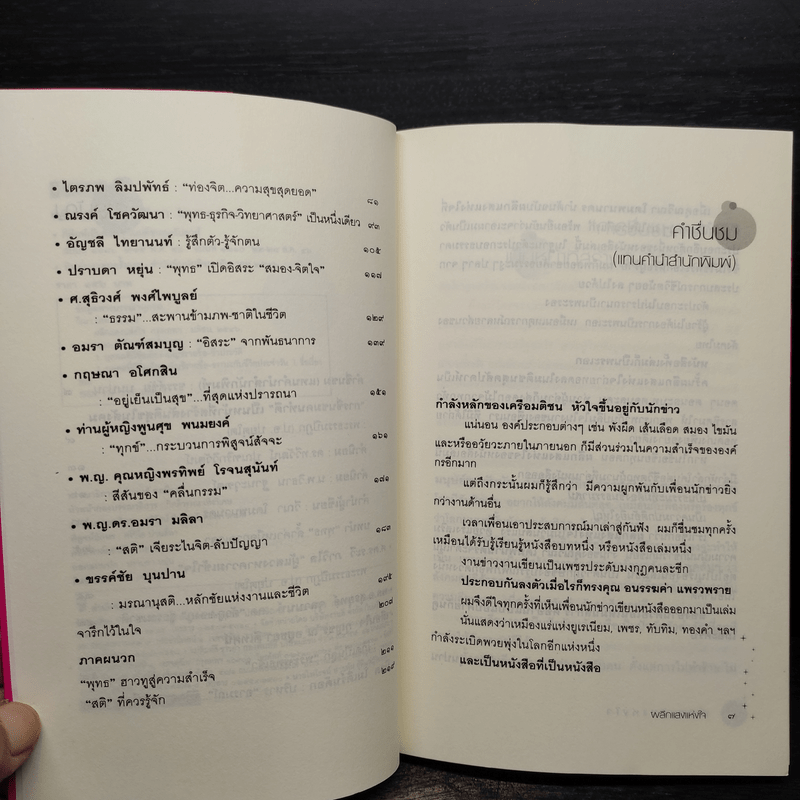 • ไตรภพ ลิมปพัทธ์ : “ท่องจิต...ความสุขสุดยอด” ๘๑
• ณรงค์ โชควัฒนา : “พุทธ-ธุรกิจ-วิทยาศาสตร์” เป็นหนึ่งเดียว ๙๓
• อัญชลี ไทยานนท์ : รู้สึกตัว-รู้จักตน ๑๐๕
• ปราบดา หยุ่น : “พุทธ” เปิดอิสระ “สมอง-จิตใจ” ๑๑๗
• ศ.สุธิวงศ์ พงศ์ไพบูลย์
: “ธรรม”...สะพานข้ามภพ-ชาติในชีวิต ๑๒๙
• อมรา ตัณฑ์สมบุญ : “อิสระ” จากพันธนาการ ๑๓๙
• กฤษณา อโศกสิน
: “อยู่เย็นเป็นสุข”...ที่สุดแห่งปรารถนา ๑๕๑
• ท่านผู้หญิงพูนศุข พนมยงค์
: “ทุกข์”...กระบวนการพิสูจน์สัจจะ ๑๖๑
• พ.ญ. คุณหญิงพรทิพย์ โรจนสุนันท์
: สีสันของ “คลื่นกรรม” ๑๘๑
• พ.ญ.ดร.อมรา มลิลา
: “สติ” เจียระไนจิต-ลับปัญญา ๑๘๓
• ขรรค์ชัย บุนปาน
: มรณานุสติ...หลักชัยแห่งงานและชีวิต ๑๙๕
จารึกไว้ในใจ ๒๐๗
ภาคผนวก ๒๑๑
“พุทธ” ฮาวทูสู่ความสำเร็จ ๒๑๙
“สติ” ที่ควรรู้จัก
คำชื่นชม
(แทนคำนำสำนักพิมพ์)
กำลังหลักของเครือมติชน หัวใจขึ้นอยู่กับนักข่าว
แน่นอน องค์ประกอบต่างๆ เช่น พังผืด เส้นเลือด สมอง ไขมัน
และหรืออวัยวะภายในภายนอก ก็มีส่วนร่วมในความสำเร็จขององค์
กรอีกมาก
แต่ถึงกระนั้นผมก็รู้สึกว่า มีความผูกพันกับเพื่อนนักข่าวยิ่ง
กว่างานด้านอื่น
เวลาเพื่อนเอาประสบการณ์มาเล่าสู่กันฟัง ผมก็ชื่นชมทุกครั้ง
เหมือนได้รับรู้เรียนรู้หนังสือบทหนึ่ง หรือหนังสือเล่มหนึ่ง
งานข่าวงานเขียนเป็นเพชรประดับมงกุฎคนละซีก
ประกอบกันลงตัวเมื่อไรก็ทรงคุณ อนรรฆค่า แพรวพราย
ผมจึงดีใจทุกครั้งที่เห็นเพื่อนนักข่าวเขียนหนังสือออกมาเป็นเล่ม
นั่นแสดงว่าเหมืองแร่แห่งยูเรเนียม, เพชร, ทับทิม, ทองคำ ฯลฯ
กำลังระเบิดพวยพุ่งในโลกอีกแห่งหนึ่ง
และเป็นหนังสือที่เป็นหนังสือ
ผลึกแสงแห่งใจ ๗